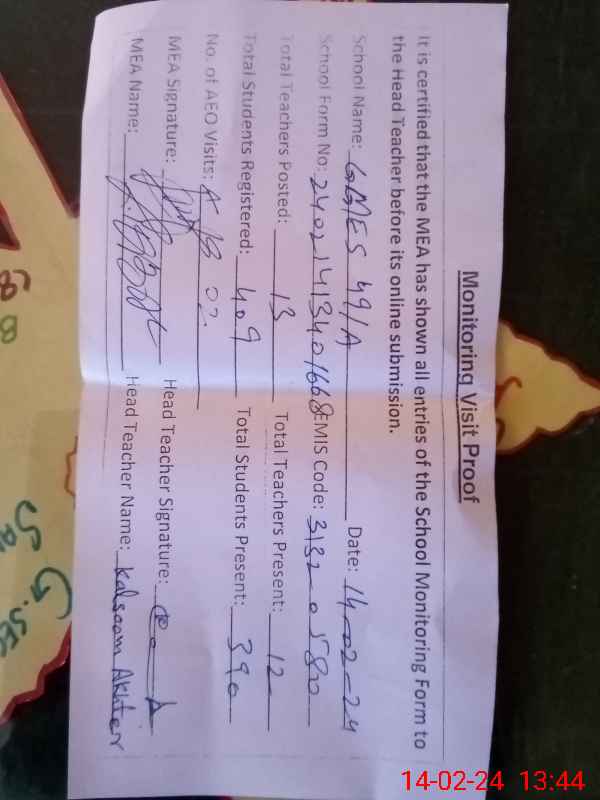 Monitoring Visit Proof
It is certified that the MEA has shown all entries of the School Monitoring Form to
the Head Teacher before its online submission.
School Name: GGMES 49/A Date: 14-02-24
School Form No: 24021413401668 EMIS Code:
Total Teachers Posted: 13 Total Teachers Present: 12
Total Students Registered: 409 Total Students Present: 390
No. of AEO Visits: 02
MEA Signature: Head Teacher Signature:
MEA Name: Head Teacher Name: Kalsoom Akhter
G.SEC
14-02-24 13:44